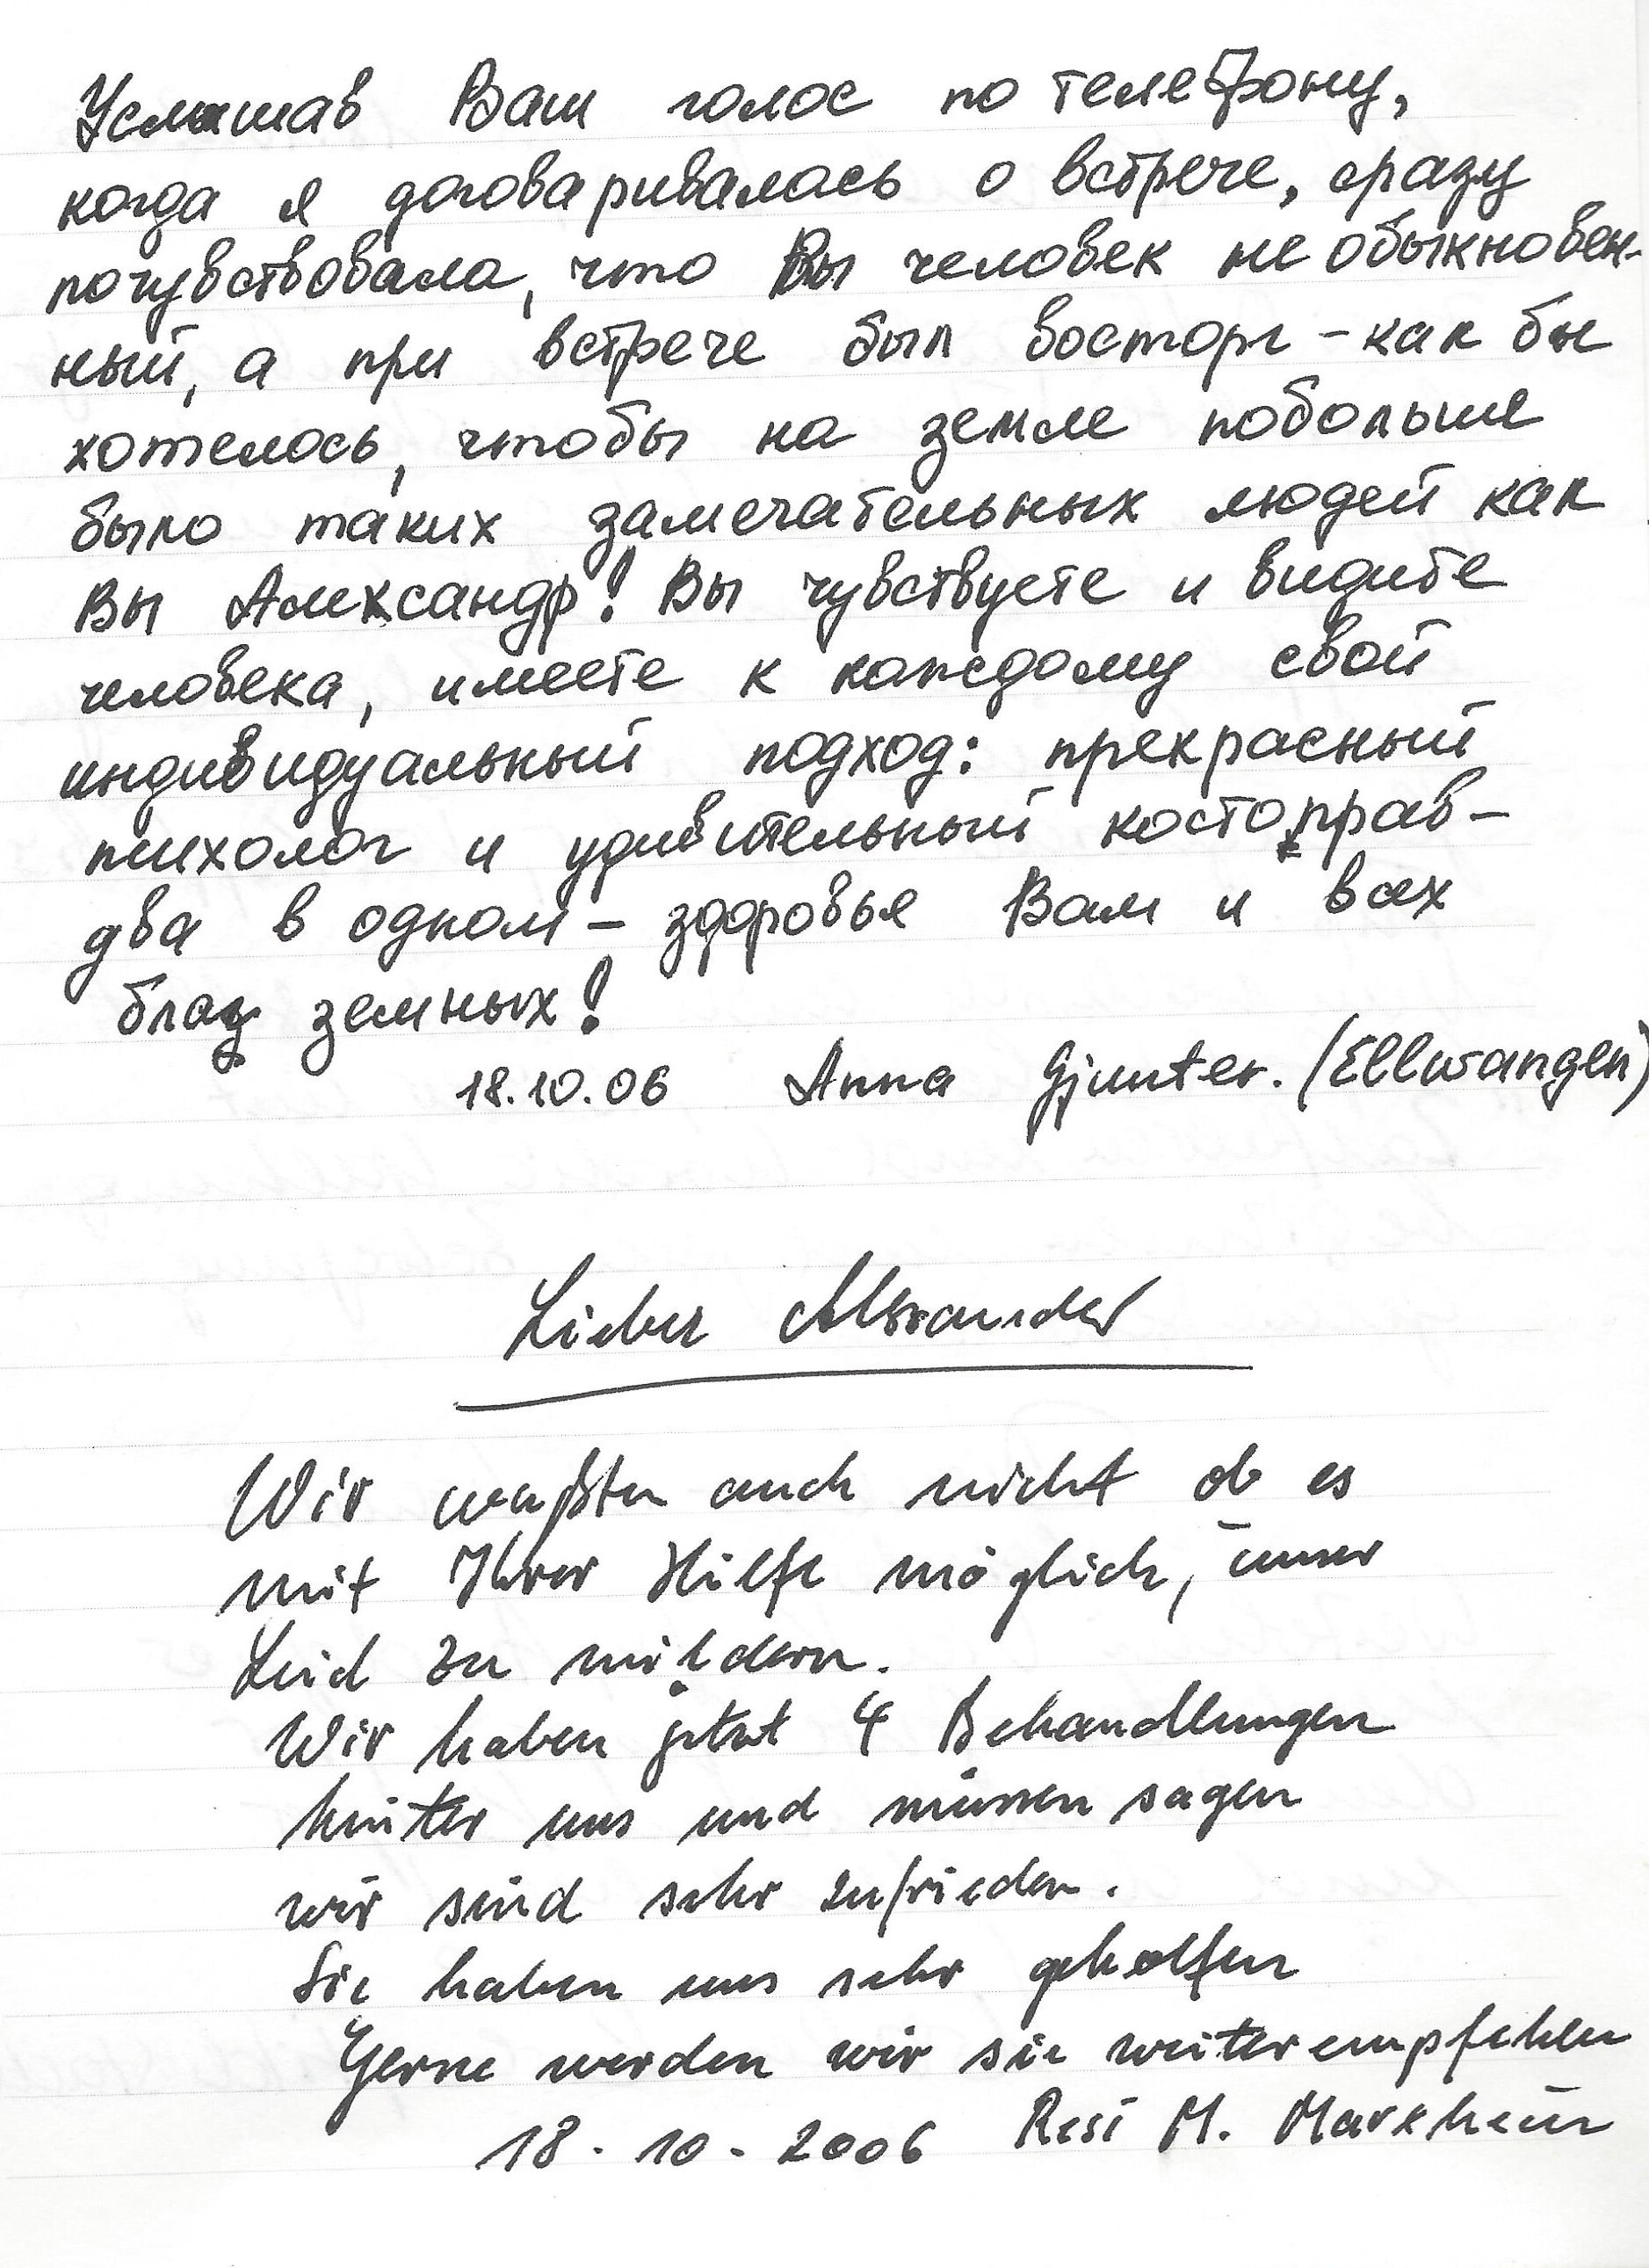 Услышав Ваш голос по телефону,
когда я договаривалась о встрече, сразу
почувствовала, что Вы человек не обыкновен-
ный, а при встрече был восторг - как бы
хотелось, чтобы на земле побольше
было таких замечательных людей как
Вы Александр! Вы чувствуете и видите
человека, имеете к каждому свой
индивидуальный подход: прекрасный
психолог и удивительный костоправ -
два в одном - здоровья Вам и всех
благ земных!
18.10.06 Anna Gjunter. (Ellwangen)
Lieber Alexander
Wir wußten auch nicht ob es
mit Ihrer Hilfe möglich, unser
Leid zu mildern.
Wir haben jetzt 4 Behandlungen
hinter uns und müssen sagen
wir sind sehr zufrieden.
Sie haben uns sehr geholfen
Gerne werden wir sie weiterempfehlen
18-10-2006 Resi M. Marxheim